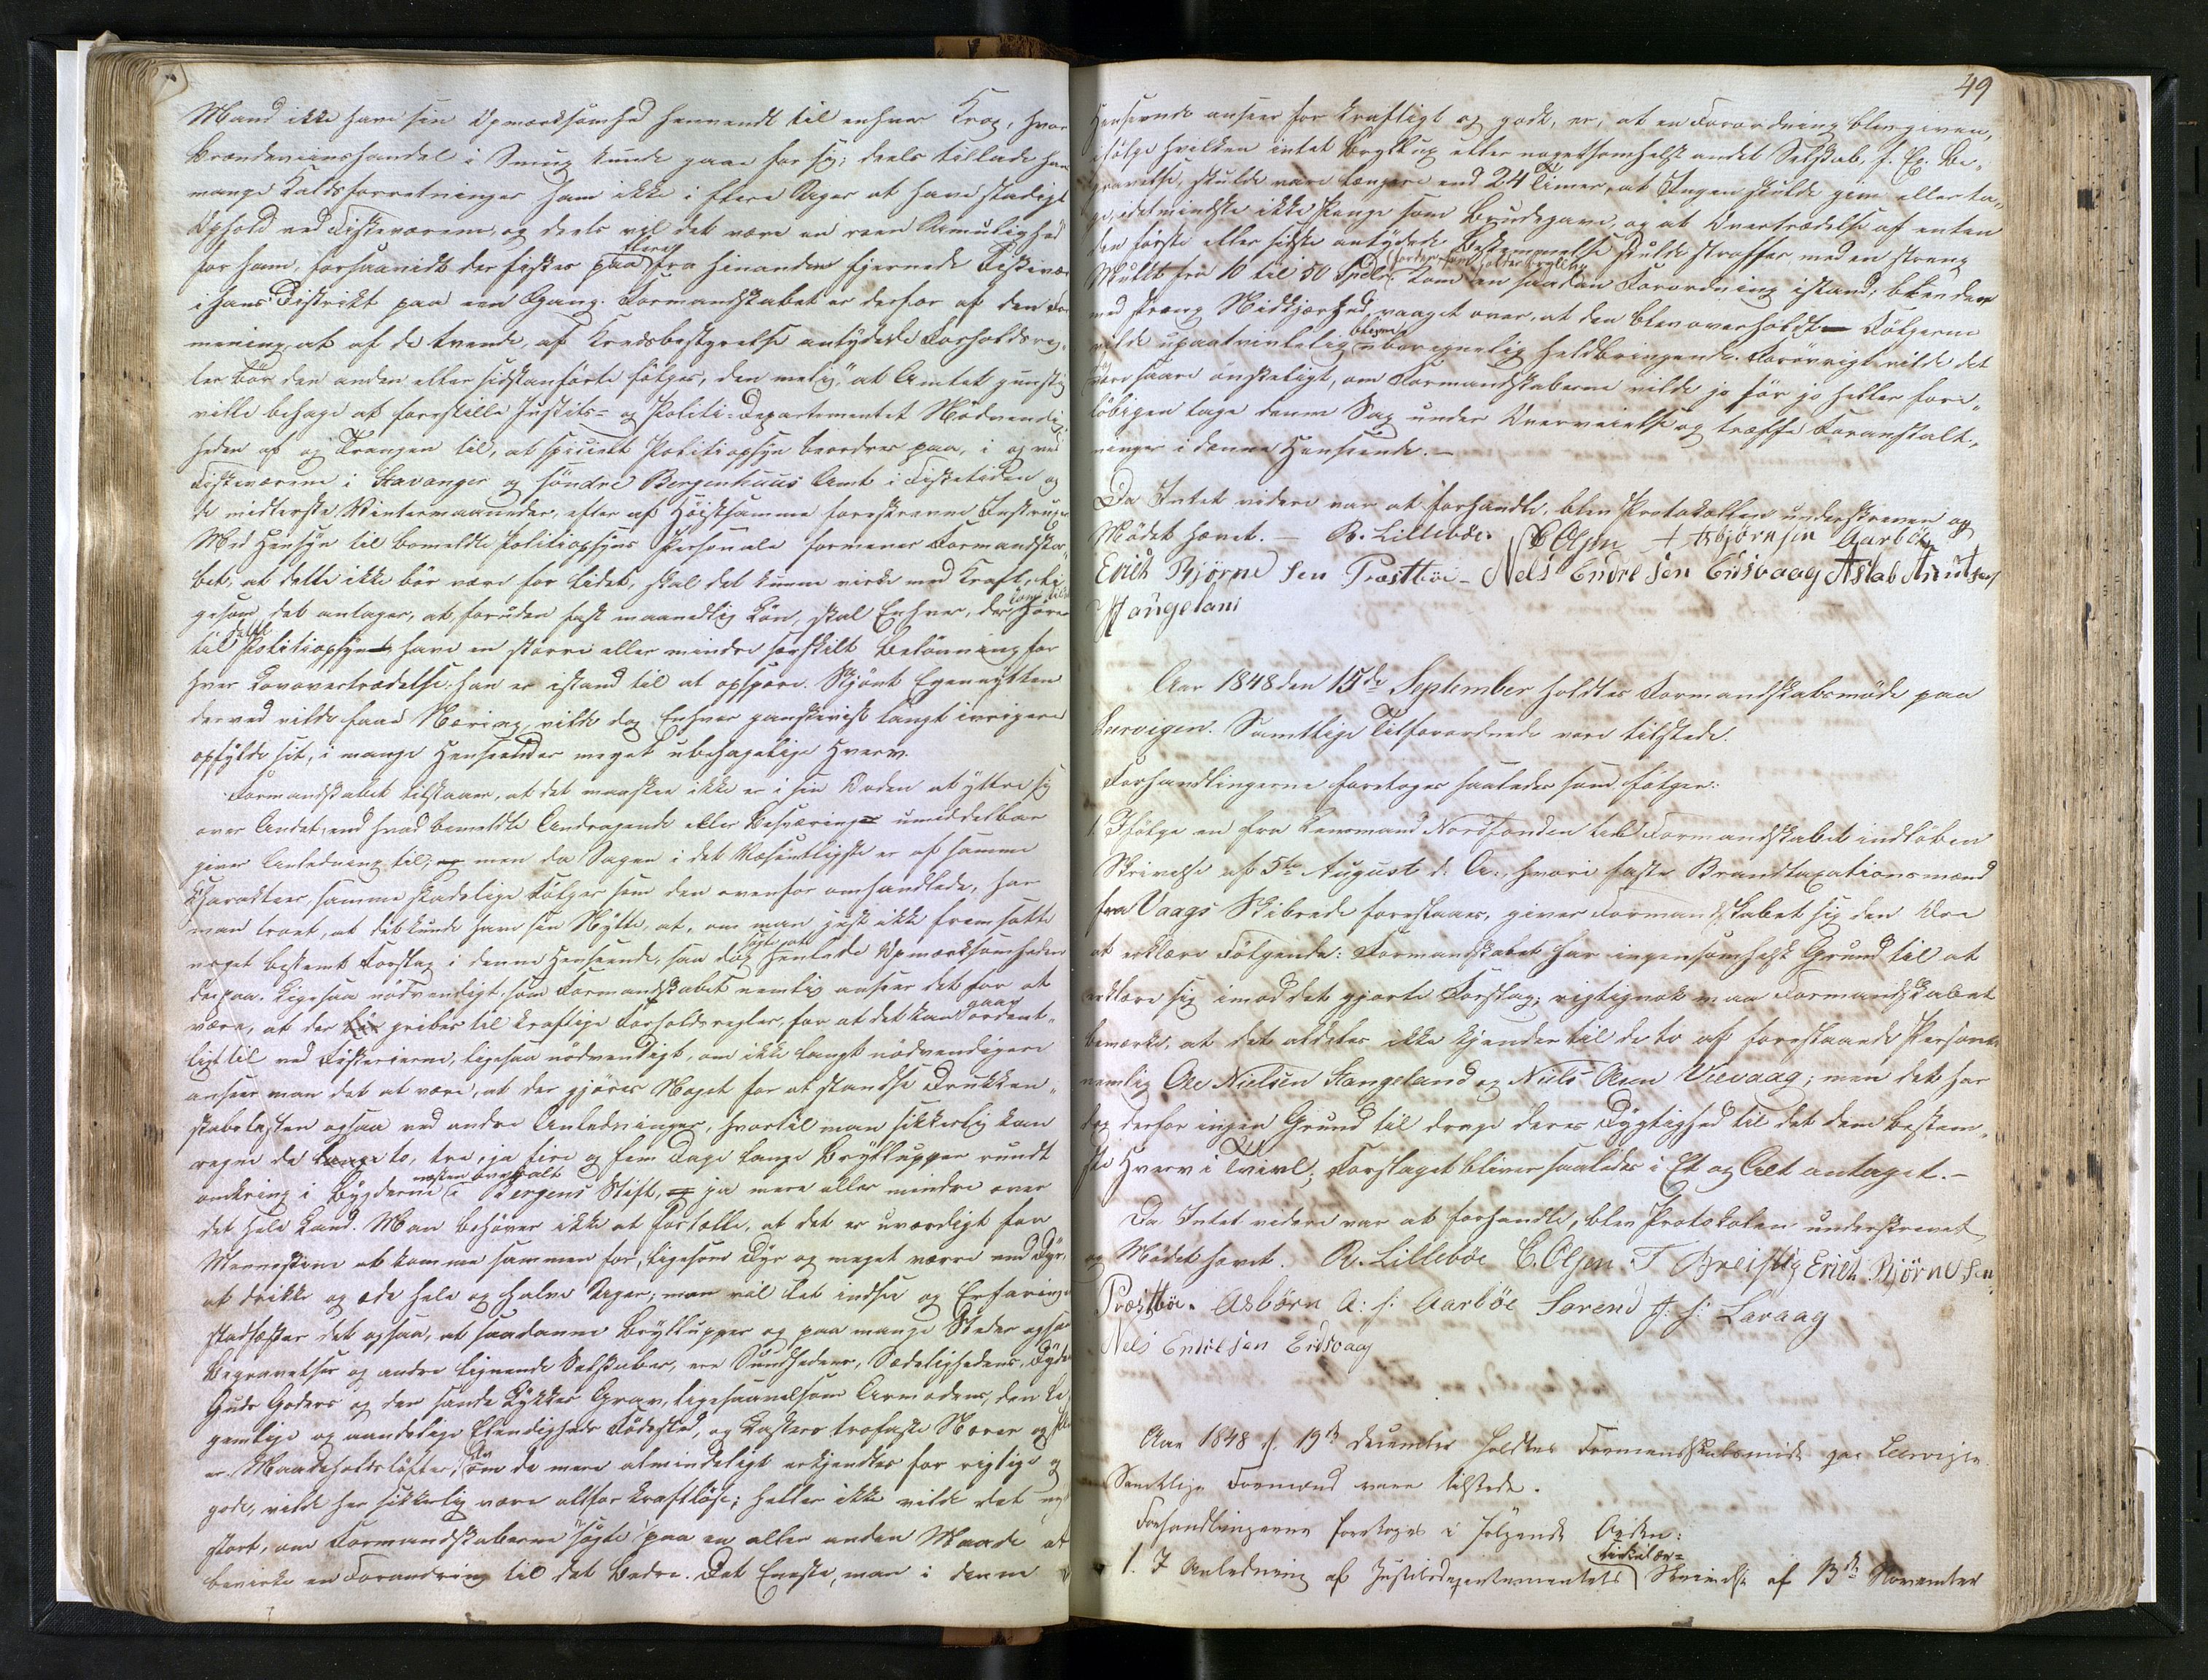 Mand ikke have sin Opmærksomhed henvendt til enhver Krog, hvor
Brændeviinshandel i Smug kunde gaae for sig; deels tillade hans
mange Kaldsforretninger ham ikke i flere Dage at have stadigt
Ophold ved Fiskeværene, og deels vil det være en reen Umulighed
for ham, forsaavidt der fiskes paa flere fra hinanden fjernede Fiskevær
i hans Distrikt paa een Gang. Formandskabet er derfor af den For
mening, at af de tvende, af Kredsbestyrelse antydede Forholdsreg-
ler bör den anden eller sidstanförte fölges, den nemlig, "at Amtet gunstig
ville behage at forestille Justits- og Politi-Departementet Nödvendig-
heden af og Trangen til, at specielt Politiopsyn beordres paa, i og ved
Fiskeværene i Stavanger og söndre Bergenhuus Amt i Fisketiden og
de midterste Vintermaaneder, efter af Höistsamme foreskrevne Instrux
Med Hensyn til bemeldte Politiopsyns Personale formener Formandska-
bet, at dette ikke bör være for lidet, skal det kunne virke med Kraft, li-
gesom det antages, at, foruden fast maanedlig Lön, skal Enhver, der kom til at Höre
til dette Politiopsyn have en större eller mindre særskilt Belönning for
hver Lovovertrædelse, han er istand til at opspore. Skjönt Egennÿtten
derved vilde faae Næring, vilde dog Enhver ganskevist langt ivrigere
opfylde sit, i mange Henseender meget ubehagelige Hverv.
Formandskabet tilstaaer, at det maaskee ikke er i sin Orden at ÿttre sig
over Andet, end hvad bemeldte Andragende eller Besværing umiddelbar
giver Anledning til; men da Sagen i det Væsentligste er af samme
Charakteer, samme skadelige Fölger som den ovenfor omhandlede, har
man troet, at det kunde have sin Nÿtte, at, om man just ikke fremsatte
noget bestemt Forslag i denne Henseende, saa dog søgte at henlede Opmærksomheden
derpaa. Ligesaa nödvendigt, som Formandskabet nemlig anseer det for at
være, at der gribes til kraftige Forholdsregler, for at det kan gaae ordent-
ligt til ved Fiskerierne, ligesaa nödvendigt, om ikke langt nödvendigere
anseer man det at være, at der gjöres Noget for at standse Drukken-
skabslasten ogsaa ved andre Anledninger, hvortil man sikkerlig kan
regne de to, tre, ja fire og fem Dage lange Brÿllupper rundt
omkring i Bÿgderne næsten overalt i Bergens Stift, ja mere eller mindre over
det hele Land. Man behöver ikke at fortælle, at det er uværdigt for
Mennesker at komme sammen for, ligesom Dÿr og meget værre end Dÿr,
at drikke og æde hele og halve Uger; man vil let indsee og Erfaringen
stadfæster det ogsaa, at saadanne Brÿllupper og paa mange Steder ogsaa
Begravelser og andre lignende Selskaber, ere Sundhedens, Sædelighedens, Dÿdens
Guds Goders og den sande Lÿkkes Grav, ligesaavelsom Armodens, den le
gemlige og aandelige Elendigheds Födested, og Lasters trofaste Nærer og
er. Maadeholdslöfter, om de mere almindeligt erkjendtes for rigtige og
gode, vilde her sikkerlig være altfor kraftlöse; heller ikke vilde det
stort, om Formandskaberne sögte paa en eller anden Maade at
bevirke en Forandring til det Bedre. Det Eneste, man i denne
49
Henseende anseer for kraftigt og godt, er, at en Forordning blev given,
ifölge hvilken intet Brÿllup eller nogetsomhelst andet Selskab, f. Ex. Be-
gravelse, skulde vare længere end 24 Timer, at Ingen skulde give eller ta-
ge, idetmindste ikke Penge som Brudegave, og at Overtrædelse af enten
den förste eller sidste antydede Bestemmelse skulde straffes med en streng
Mulkt fra 10 til 50 Spdlr. Kom en saadan Forordning istand, blev der
med streng Nidkjærhed, vaaget over, at den blev overholdt – Fölgerne
vilde upaatvivlelig blive uberegnelig heldbringende. Forövrigt vilde det
være saare önskeligt, om Formandskaberne vilde jo för jo heller fore-
löbigen tage denne Sag under Overveielse og træffe Foranstalt-
ninger i denne Henseende. –
Da Intet videre var at forhandle, blev Protokollen underskreven og
Mödet hævet. – R. Lilleböe. C Olsen A Asbjørnsen Aarböe
Erich Bjørne sen Præstböe – Nels Endre sen Eidsvaag Aslak Knutsen
Haugeland
Aar 1848 den 15de September holdtes Formandskabsmöde paa
Lervigen. Samtlige Tilforordnede vare tilstede.
Forhandlingerne foretoges saaledes som fölger:
1. Ifölge en fra Lensmand Nordfonden til Formandskabet indlöben
Skrivelse af 5te August d. A., hvori faste Brandtaxationsmænd
fra Vaags Skibrede foreslaaes, giver Formandskabet sig den Ære
at erklære Fölgende: Formandskabet har ingensomhelst Grund til at
erklære sig imod det gjorte Forslag; rigtignok maa Formandskabet
bemærke, at det aldeles ikke kjender til de to af foreslaaede Personer
nemlig Ole Nielsen Stangeland og Niels Olsen Vievaag; men det har
dog derfor ingen Grund til drage deres Dygtighed til det dem bestem-
te Hverv i Tvivl; Forslaget bliver saaledes i Et og Alt antaget. –
Da Intet videre var at forhandle, blev Protokolen underskrevet
og Mödet hævet. R. Lilleböe C. Olsen. T Breistig Erich Bjørne sen
Præstböe. Asbörn A: s: Aarböe Soren J. s: Lavaag
Nels Endre sen Eidsvaag
Aar 1848 d. 19de December holdtes Formandskabsmöde paa Leervigen.
Samtlige Formænd vare tilstede.
Forhandlingerne foretoges i fölgende Orden:
1. I Anledning af Justitsdepartementets Cirkulær- Skrivelse af 13de November